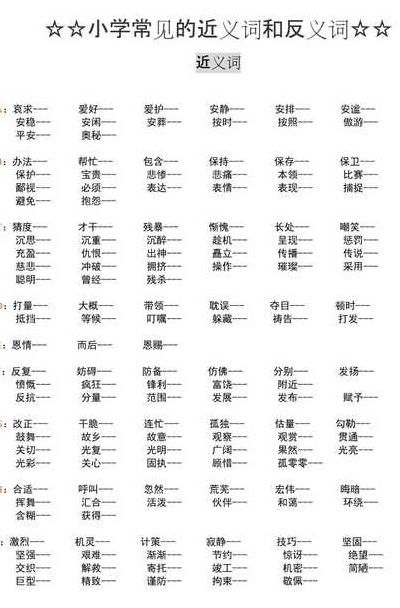 ☆☆小学常见的近义词和反义词☆☆
近义词
哀求--- 爱好--- 爱护--- 安静--- 安排--- 安谧---
安稳--- 安闲--- 安葬--- 按时--- 按照--- 傲游---
平安--- 奥秘---
办法--- 帮忙--- 包含--- 保持--- 保存--- 保卫---
保护--- 宝贵--- 悲惨--- 悲痛--- 本领--- 比赛---
鄙视--- 必须--- 表达--- 表情--- 表现--- 捕捉---
避免--- 抱怨---
猜度--- 才干--- 残暴--- 惭愧--- 长处--- 嘲笑---
沉思--- 沉重--- 沉醉--- 趁机--- 呈现--- 惩罚---
充盈--- 仇恨--- 出神--- 矗立--- 传播--- 传说---
慈悲--- 冲破--- 拥挤--- 操作--- 璀璨--- 采用---
聪明--- 曾经--- 残杀---
打量--- 大概--- 带领--- 耽误--- 夺目--- 顿时---
抵挡--- 等候--- 叮嘱--- 躲藏--- 祷告--- 打发---
恩情--- 而后--- 恩赐---
反复--- 妨碍--- 防备--- 仿佛--- 分别--- 发扬---
愤慨--- 疯狂--- 锋利--- 富饶--- 附近---
反抗--- 分量--- 范围--- 发展--- 发布--- 赋予---
改正--- 干脆--- 连忙--- 孤独--- 估量--- 勾勒---
鼓舞--- 故乡--- 故意--- 观察--- 观赏--- 贯通---
关切--- 光复--- 光明--- 广阔--- 果然--- 光亮---
光彩--- 关心--- 固执--- 顾惜--- 孤零零---
合适--- 呼叫--- 忽然--- 荒芜--- 宏伟--- 晦暗---
挥舞--- 汇合--- 活泼--- 伙伴--- 和蔼--- 环绕---
含糊--- 获得---
激烈--- 机灵--- 计策--- 寂静--- 技巧--- 坚固---
坚强--- 艰难--- 渐渐--- 节约--- 惊讶--- 绝望---
交织--- 解救--- 寄托--- 竣工--- 机密--- 简陋---
巨型--- 精致--- 谨防--- 拘束--- 敬佩---